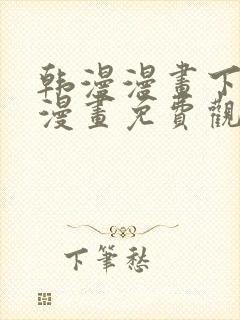 韩漫漫畫下
漫畫免費觀
下筆愁